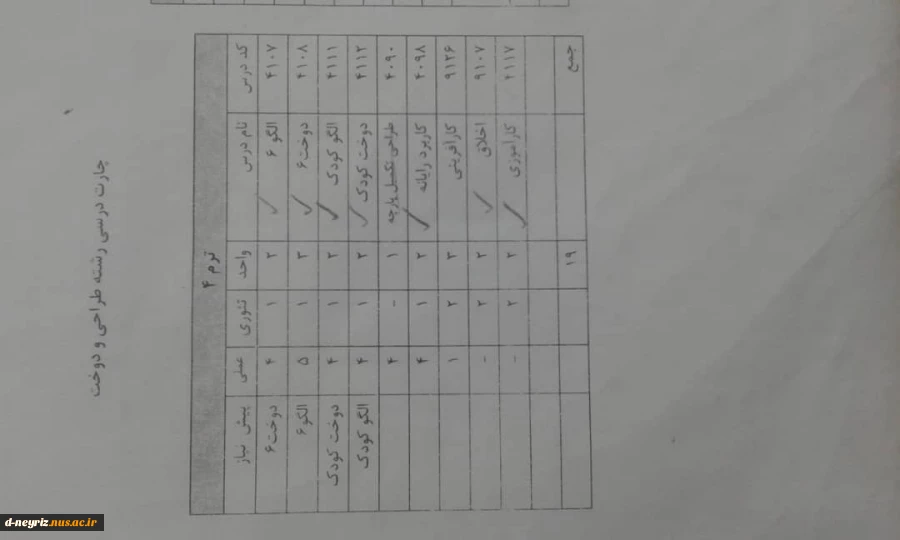 چارت درسی رشته طراحی و دوخت
ترم ۴
کد درس نام درس واحد تئوری عملی پیش نیاز
۴۱۰۷ الگو ۶ ۲ ۱ ۴ دوخت ۶
۴۱۰۸ دوخت ۶ ۳ ۱ ۵ الگو ۶
۴۱۱۱ الگو کودک ۲ ۱ ۴ دوخت کودک
۴۱۱۲ دوخت کودک ۲ ۱ ۴ الگو کودک
۴۰۹۰ طراحی تکمیل پارچه ۱ - ۴
۴۰۹۸ کاربرد رایانه ۲ ۱ ۴
۹۱۲۶ کارآفرینی ۳ ۲ ۱
۹۱۰۷ اخلاق ۲ ۲ -
۴۱۱۷ کارآموزی ۲ ۲ -
جمع ۱۹
d-neyriz.nus.ac.ir